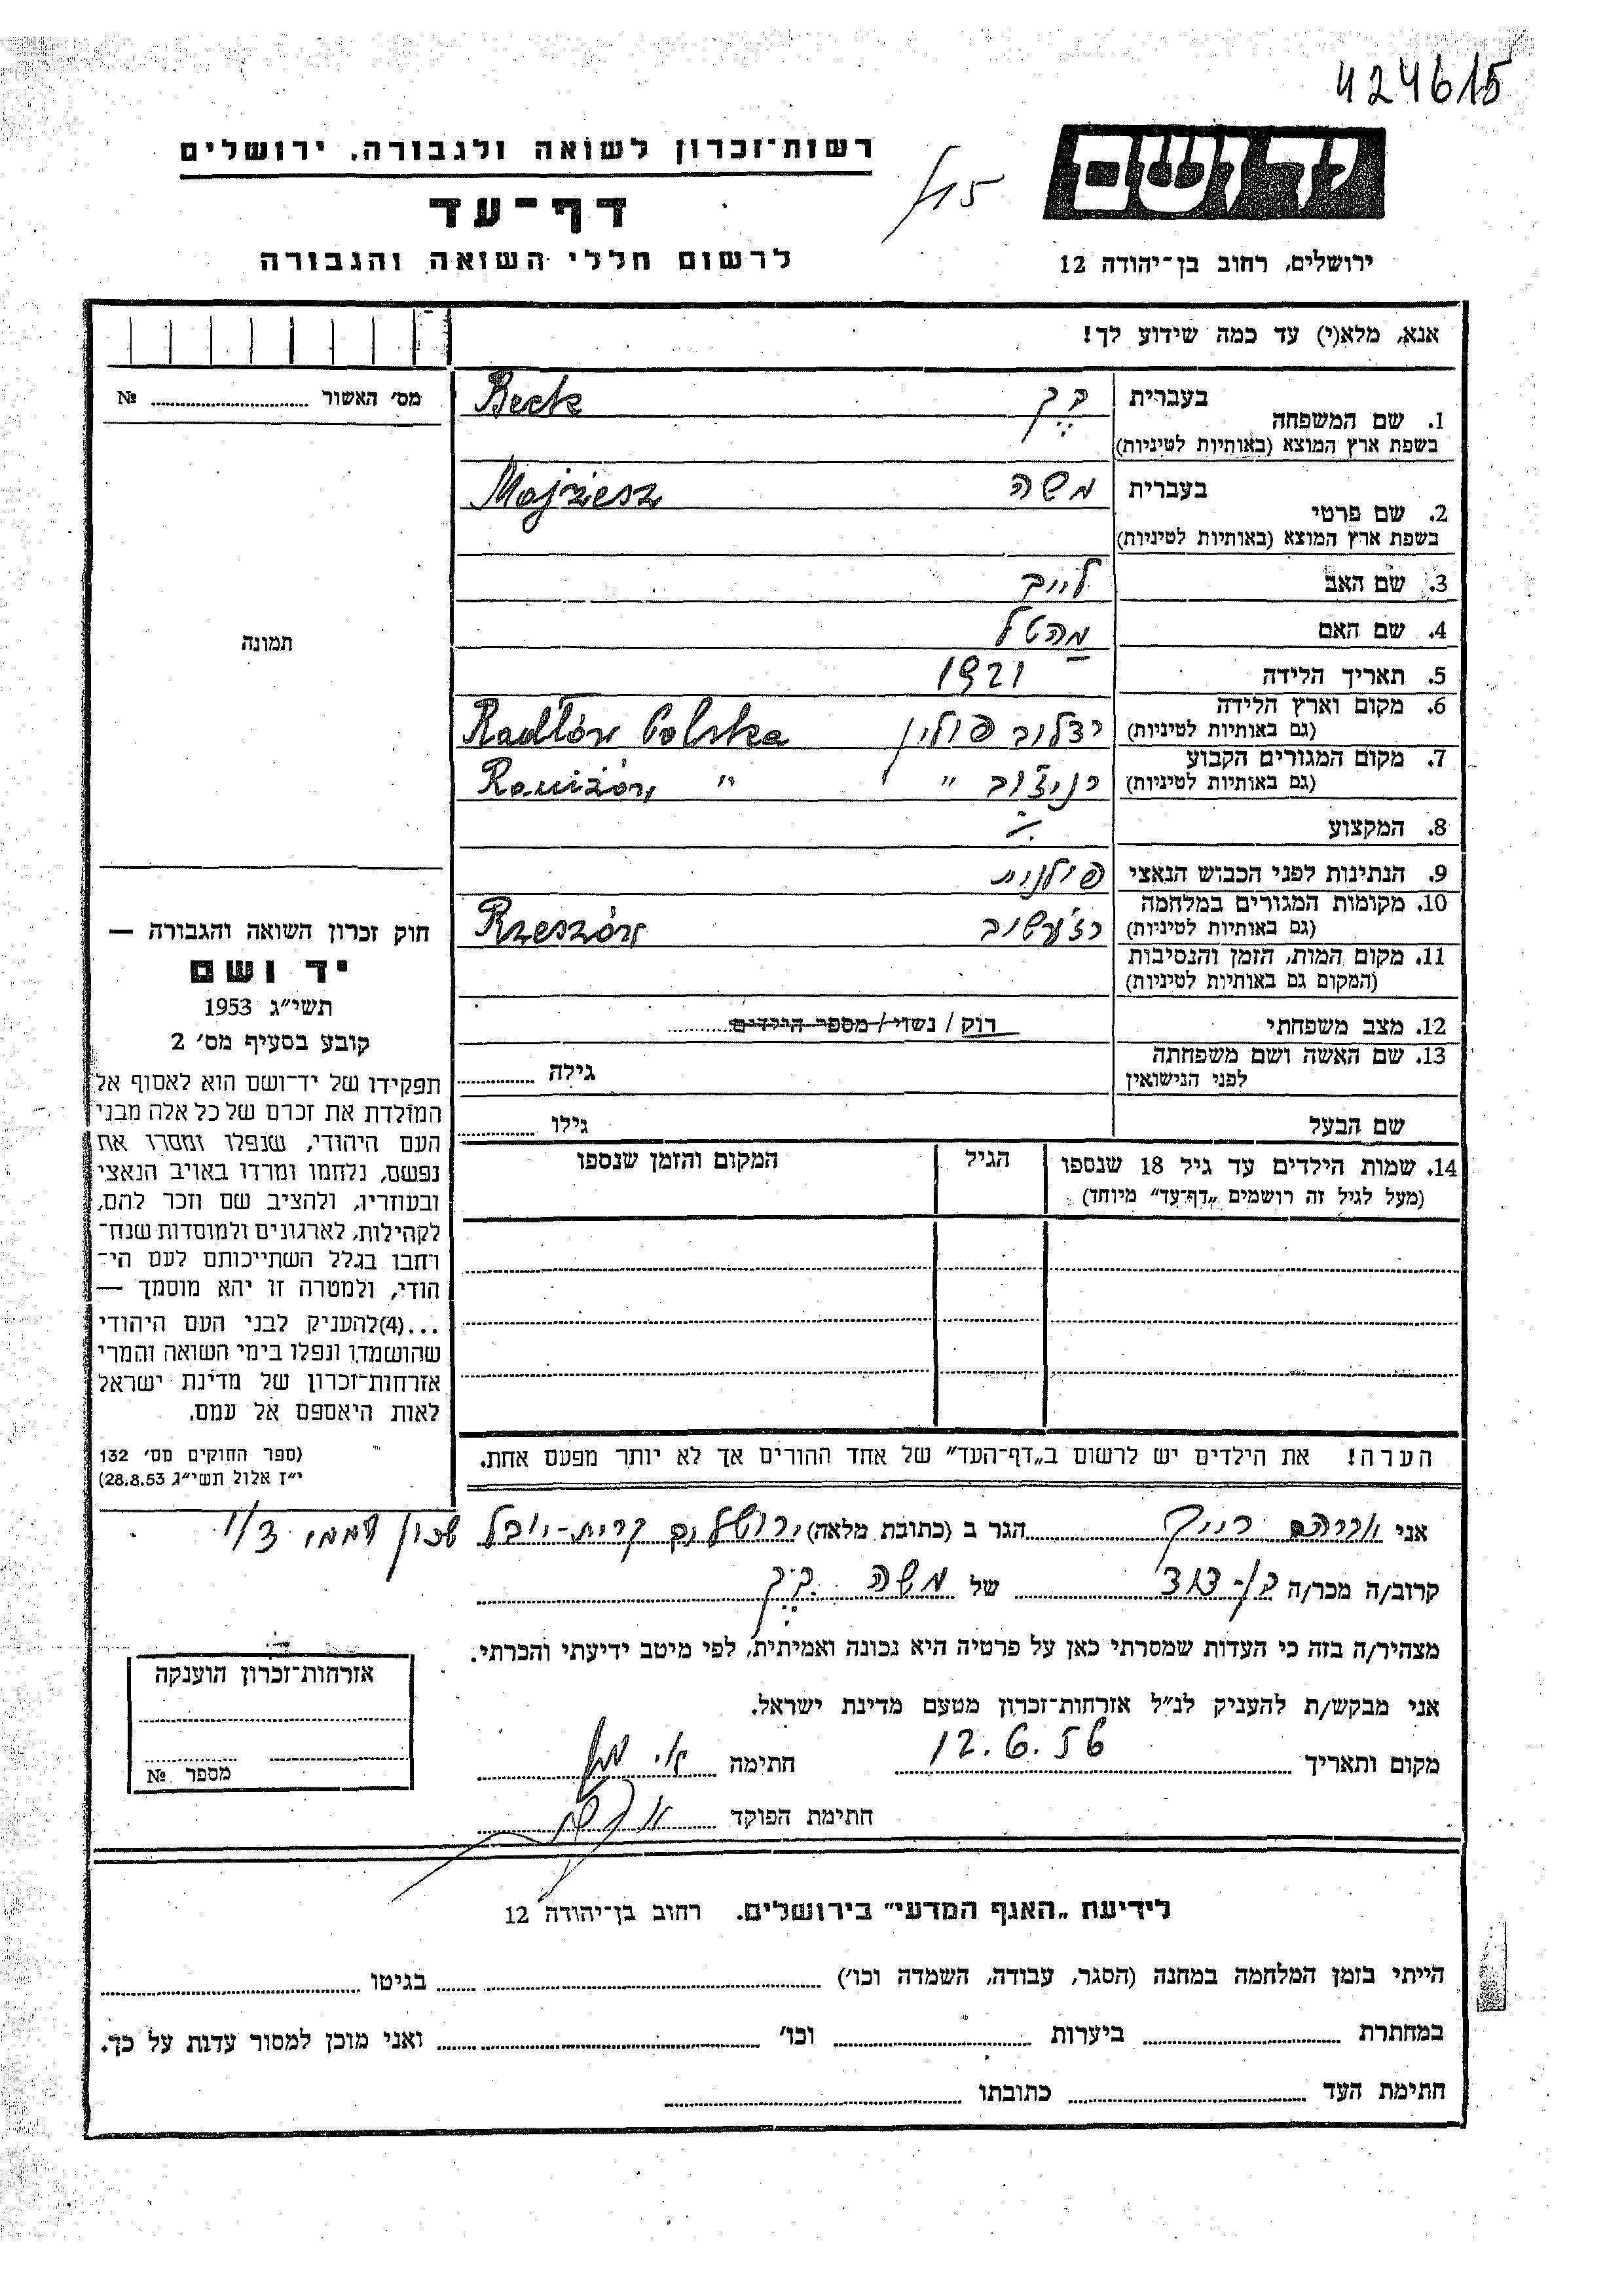 424615
יד ושם
רשות־זכרון לשואה ולגבורה, ירושלים
דף־עד
לרשום חללי השואה והגבורה
ירושלים, רחוב בן־יהודה 12
אנא, מלא(י) עד כמה שידוע לך!
מס׳ האשור № ..........
1. שם המשפחה בעברית בק Beck
בשפת ארץ המוצא (באותיות לטיניות)
2. שם פרטי בעברית משה Mojżesz
בשפת ארץ המוצא (באותיות לטיניות)
3. שם האב לייב
4. שם האם מהטל
5. תאריך הלידה 1921
6. מקום וארץ הלידה (גם באותיות לטיניות) רדלוב פולין Radłów Polska
7. מקום המגורים הקבוע (גם באותיות לטיניות) רניז׳וב " Raniżów "
8. המקצוע
9. הנתינות לפני הכבוש הנאצי פולנית
10. מקומות המגורים במלחמה (גם באותיות לטיניות) רז׳עשוב Rzeszów
11. מקום המות, הזמן והנסיבות
(המקום גם באותיות לטיניות)
12. מצב משפחתי רווק / נשוי / מספר הילדים ..........
13. שם האשה ושם משפחתה לפני הנישואין גילה ..........
שם הבעל גילו ..........
14. שמות הילדים עד גיל 18 שנספו הגיל המקום והזמן שנספו
(מעל לגיל זה רושמים „דף־עד" מיוחד)
הערה! את הילדים יש לרשום ב„דף־העד" של אחד ההורים אך לא יותר מפעם אחת.
תמונה
חוק זכרון השואה והגבורה —
יד ושם
תשי״ג 1953
קובע בסעיף מס׳ 2
תפקידו של יד־ושם הוא לאסוף אל
המולדת את זכרם של כל אלה מבני
העם היהודי, שנפלו ומסרו את
נפשם, נלחמו ומרדו באויב הנאצי
ובעוזריו, ולהציב שם וזכר להם,
לקהילות, לארגונים ולמוסדות שנח־
רבו בגלל השתייכותם לעם הי־
הודי, ולמטרה זו יהא מוסמך —
...(4)להעניק לבני העם היהודי
שהושמדו ונפלו בימי השואה והמרי
אזרחות־זכרון של מדינת ישראל
לאות היאספם אל עמם.
(ספר החוקים מס׳ 132
י״ז אלול תשי״ג 28.8.53)
אני אברהם הגר ב (כתובת מלאה) ירושלים קרית-יובל שכון
קרוב/ה מכר/ה בן-דוד של משה בק
מצהיר/ה בזה כי העדות שמסרתי כאן על פרטיה היא נכונה ואמיתית, לפי מיטב ידיעתי והכרתי.
אני מבקש/ת להעניק לנ״ל אזרחות־זכרון מטעם מדינת ישראל.
מקום ותאריך 12.6.56 חתימה
חתימת הפוקד
אזרחות־זכרון הוענקה
מספר №
לידיעת „האגף המדעי" בירושלים. רחוב בן־יהודה 12
הייתי בזמן המלחמה במחנה (הסגר, עבודה, השמדה וכו׳) .......... בגיטו ..........
במחתרת .......... ביערות .......... וכו׳ .......... ואני מוכן למסור עדות על כך.
חתימת העד .......... כתובתו ..........